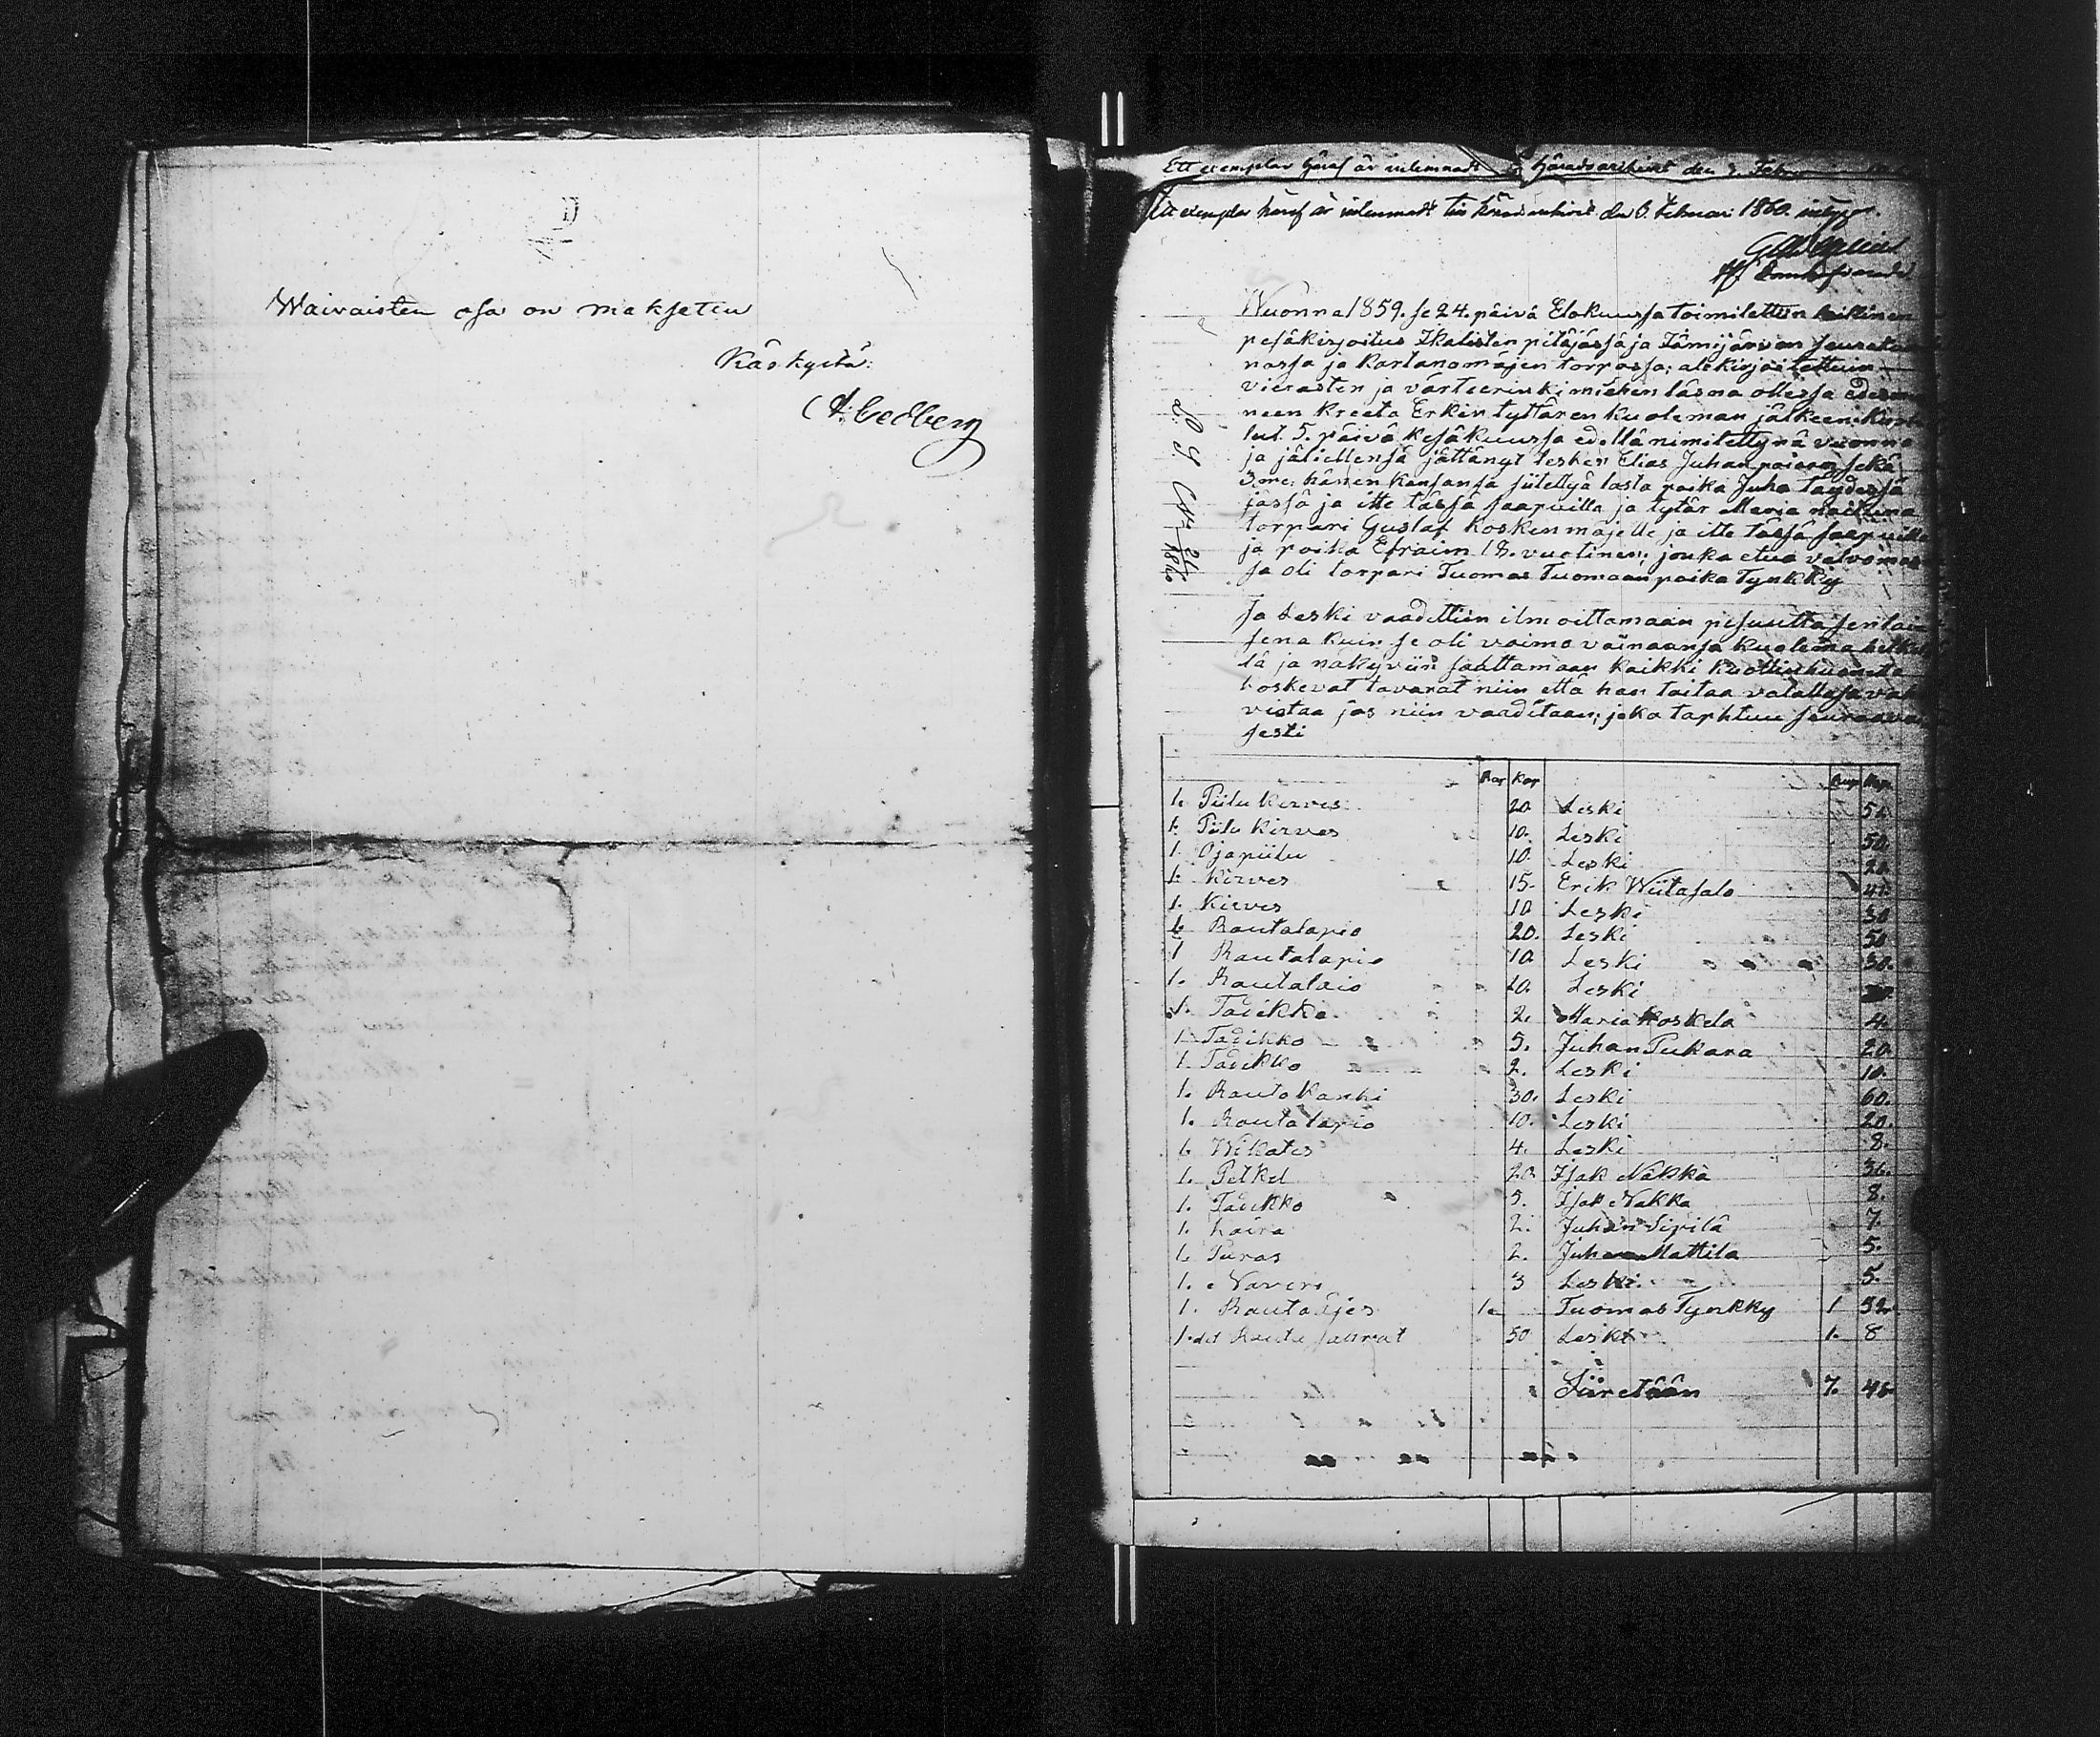 Waivaisten osa on maksettu
Käskystä:
A: Cedberg
Ett exemplar häraf är inlemnadt Häradsarkivet den Feb
Ett exemplar häraf är inlemnadt till Häradsarkivet den 6. Februari 1860. intygar.
Wuonna 1859. se 24. päivä Elokuussa toimitettiin laillinen
pesäkirjoitus Ikalisten pitäjässä ja Jämijärven seurata
nassa ja Kartanomäjen torpassa; allekirjoitettuin
vierasten ja värteerinkimiehen läsna ollessa edesm
neen Kreeta Erkin tyttären kuoleman jälkeen:
lut. 5. päivä Kesäkuussa edellä nimitettynä vuonna
ja jäliellensä jättänyt lesken Elias Juhan pojan sekä
3me. hänen kansansa siitettyä lasta poika Juha täydessä
jässä ja itte tässä saapuilla ja tytär Maria naituna
torpari Gustaf Koskenmäjelle ja itte tässä saapuilla
ja poika Efraim 18. vuotinen; jonka etua valvomas
sa oli torpari Tuomas Tuomaanpoika Tynkky
Ja Leski vaadittiin ilmoittamaan pesuutta senlai
sena kuin se oli vaimo vainaansa kuolema hetkel
lä ja näkyviin saattamaan kaikki kuollinhuonetta
koskevat tavarat niin että han taitaa valallasa vah
vistaa jos niin vaaditaan; joka taphtuu seuraavai
sesti
Rup Kop Rup Kop
1. Piilu Kirves 20 Leski 50.
1. Piilu Kirves 10. Leski 50.
1. Ojapiilu 10. Leski 20.
1. Kirves 15. Erik Wiitasalo 41.
1. Kirves 10 Leski 30
1. Rautalapio 20. Leski 50
1 Rautalapio 10 Leski 30.
1. Rautalaio 10. Leski
1. Tadikko 2. Maria Koskela 4.
1. Tadikko 5. Juhan Pukara 20.
1. Tadikko 2. Leski 10.
1. Rautakanki 30. Leski 60.
1. Rautalapio 10. Leski 20.
1. Wikates 4. Leski 8.
1. Petkel 20 Isak Näkkä 36.
1. Tadikko 5. Isak Nakka 8.
1. Laira 2. Juhan Sipilä 7.
1. Puras 2. Juhan Mattila 5.
1. Naveri 3 Leski 5.
1. Rautaäjes 1. Tuomas Tynkky 1 52
1. Rauta 50 Leski 1. 8
Siiretään 7.